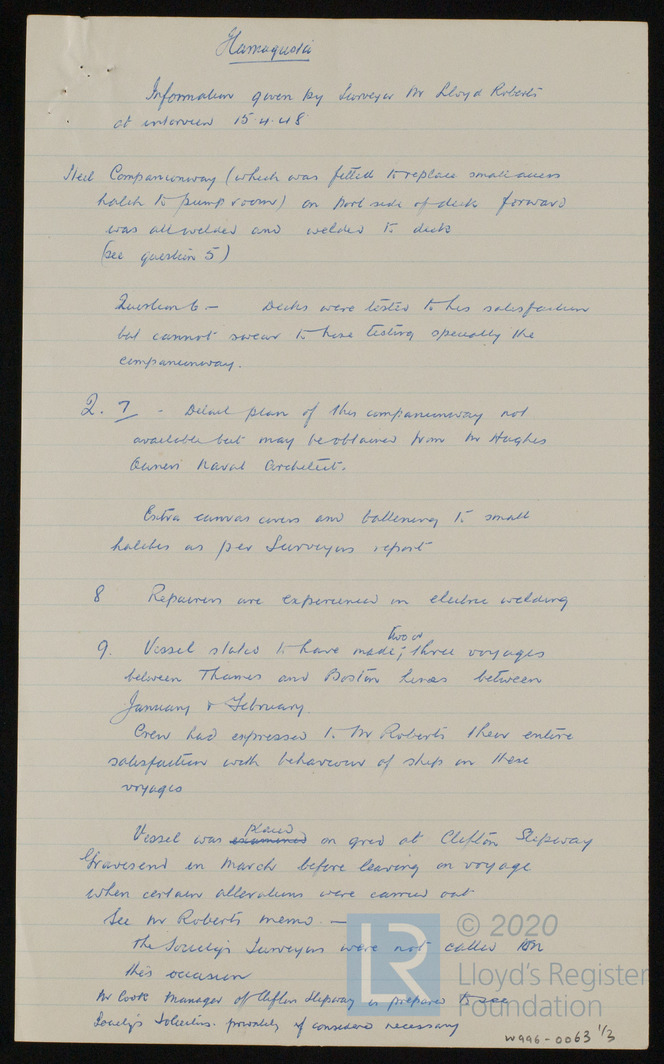 Famagusta
Information given by Surveyor Mr Lloyd Roberts
at interview 15.4.48
Steel Companionway (which was fitted to replace small access
hatch to pump room) on port side of deck forward
was all welded and welded to deck
(see question 5)
Question 6 - Decks were tested to his satisfaction
but cannot swear to hose testing specially the
companionway.
Q. 7 - Detail plan of this companionway not
available but may be obtained from Mr Hughes
Owners Naval Architect.
Extra canvas covers and battening to small
hatches as per Surveyors report
8 Repairers are experienced in electric welding
9. Vessel stated to have made two or three voyages
between Thames and Boston Lincs between
January & February.
Crew had expressed to Mr Roberts their entire
satisfaction with behaviour of ship on these
voyages
Vessel was examined placed on grid at Clifton Slipway
Gravesend in March before leaving on voyage
when certain alterations were carried out
See Mr Roberts memo. -
The Society's Surveyors were not called in on
this occasion
Mr Cook Manager of Clifton Slipway is prepared to see
Society's Solicitors privately if considered necessary
LR
© 2020
Lloyd's Register
Foundation
W996-0063 1/3